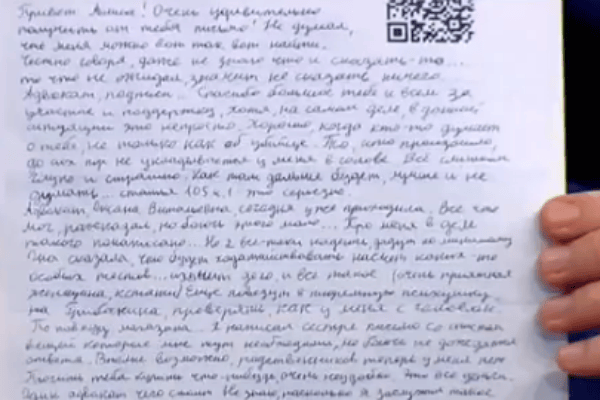 Привет Алиса! Очень удивительно
получить от тебя письмо! Не думал,
что меня можно вот так вот найти.
Честно говоря, даже не знаю что и сказать-то...
то что не ожидал, значит не сказать ничего.
Адвокат, подписи... Спасибо большое тебе и всем за
участие и поддержку, хотя, на самом деле, в данной
ситуации это непросто. Хорошо, когда кто-то думает
о тебе, не только как об убийце. То, что произошло,
до сих пор не укладывается у меня в голове. Всё слишком
глупо и страшно. Как там дальше будет, лучше и не
думать... статья 105 ч.1 это серьезно.
Адвокат, Оксана Витальевна, сегодня уже приходила. Все что
мог, рассказал, но боюсь этого мало... Про меня в деле
такого понаписано... Но я все-таки надеюсь, дадут по минимуму
Она сказала, что будут ходатайствовать насчёт каких-то
особых тестов... изъятий эго, и все такое (очень приятная
женщина, кстати) Еще повезут в тюремную психушку,
на Грибакина, проверять, как у меня с головой.
По поводу магазина... Я написал сестре письмо со списком
вещей которые мне тут необходимы, но боюсь не дождаться
ответа. Вполне возможно, родственников теперь у меня нет.
Просить тебя купить что-нибудь, очень неудобно. Это все деньги.
Один адвокат чего стоит. Не знаю, насколько я заслужил такое